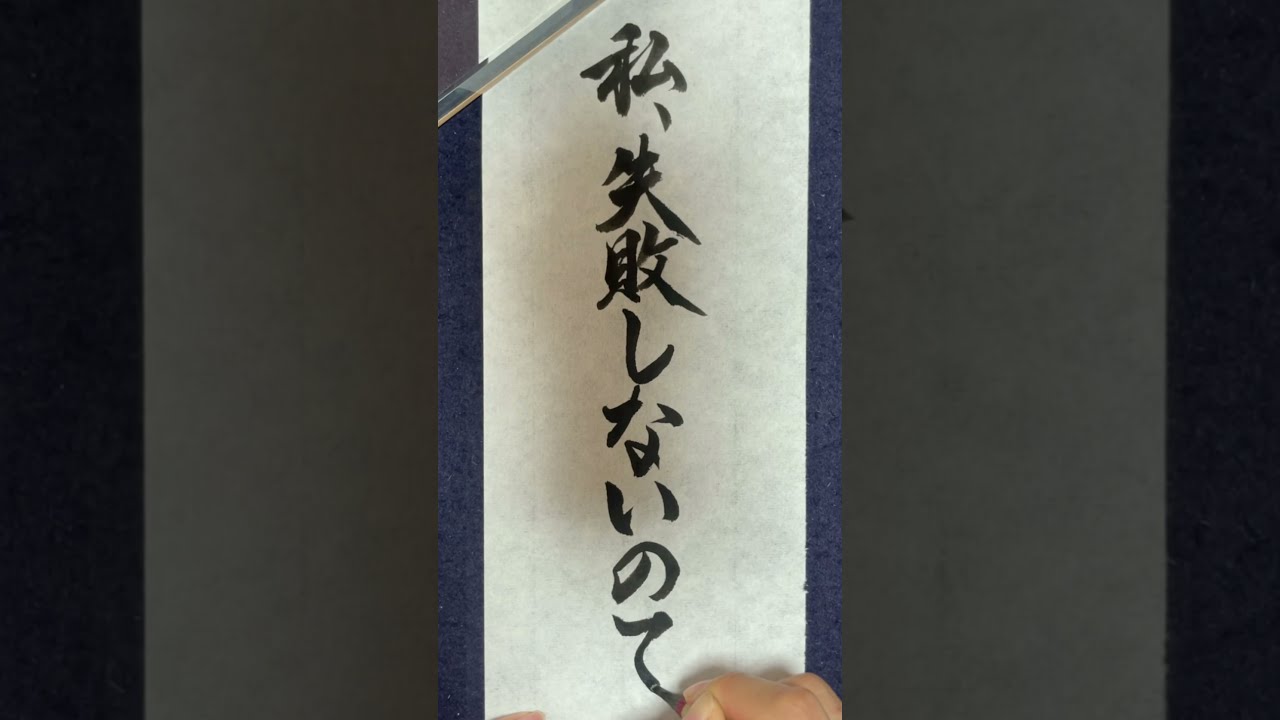 私、失敗しないので